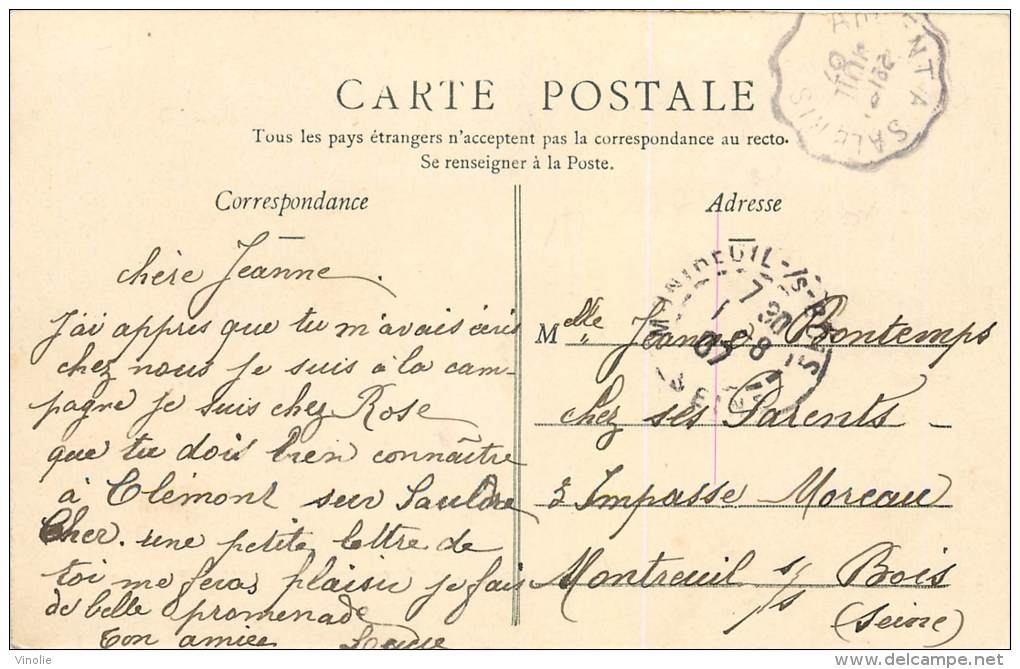 CARTE POSTALE
Tous les pays étrangers n'acceptent pas la correspondance au recto.
Se renseigner à la Poste.
Correspondance
chère Jeanne.
J'ai appris que tu m'avais écris
chez nous je suis à la cam-
pagne je suis chez Rose
que tu dois bien connaître
à Clémont sur Sauldre
Cher. une petite lettre de
toi me feras plaisir je fais
de belle promenade
Ton amiee
Adresse
Melle Jeanne Bontemps
chez ses Parents
3 Impasse Moreau
Montreuil s/s Bois
(Seine)
MONTREUIL-/S-BOIS
SEINE
7 30
1 8
07
ARGENT A SALBRIS
Vinolie
www.delcampe.net